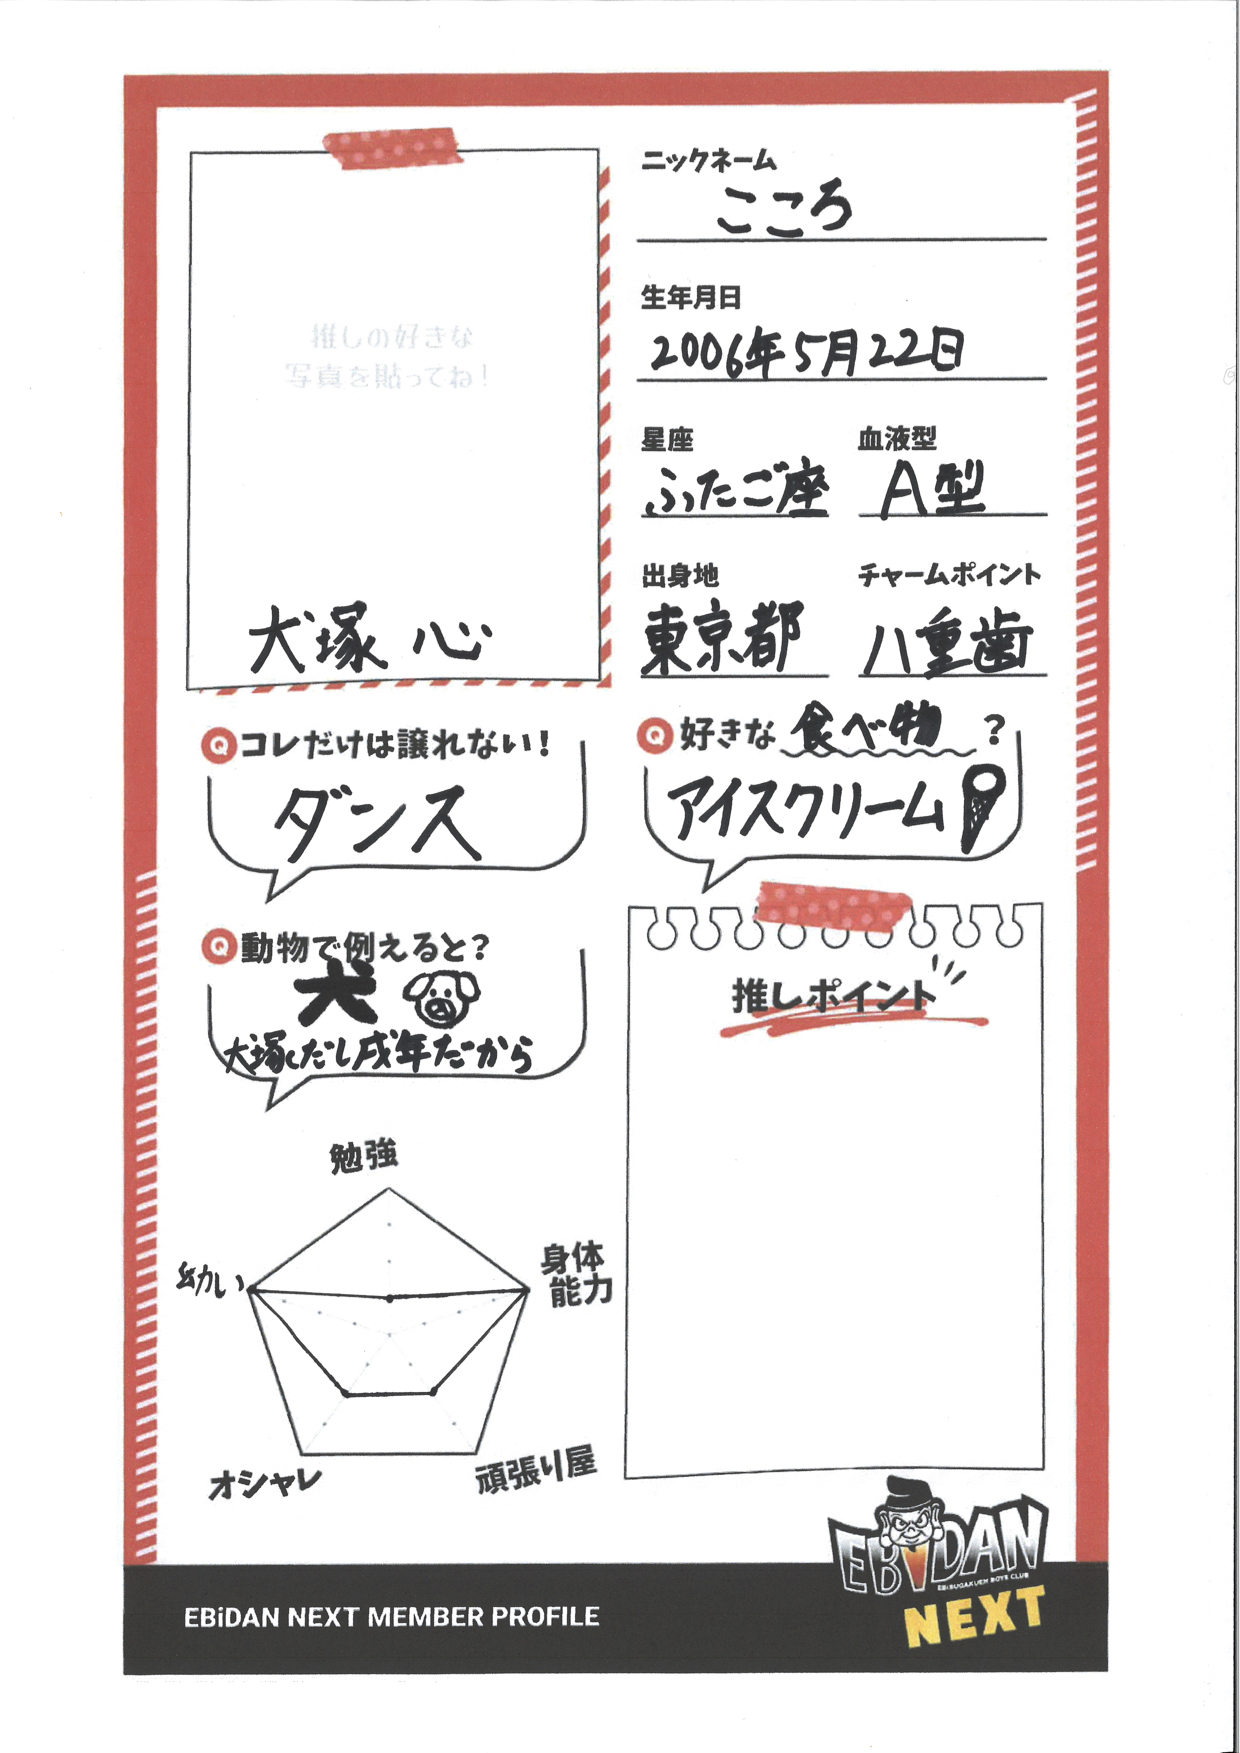 推しの好きな
写真を貼ってね！
犬塚 心
ニックネーム
こころ
生年月日
2006年5月22日
星座
ふたご座
血液型
A型
出身地
東京都
チャームポイント
八重歯
Q コレだけは譲れない！
ダンス
Q 好きな 食べ物 ？
アイスクリーム
Q 動物で例えると？
犬
犬塚だし戌年だから
推しポイント
勉強
身体
能力
頑張り屋
オシャレ
幼い
EBiDAN
EBISUGAKUEN BOYS CLUB
NEXT
EBiDAN NEXT MEMBER PROFILE